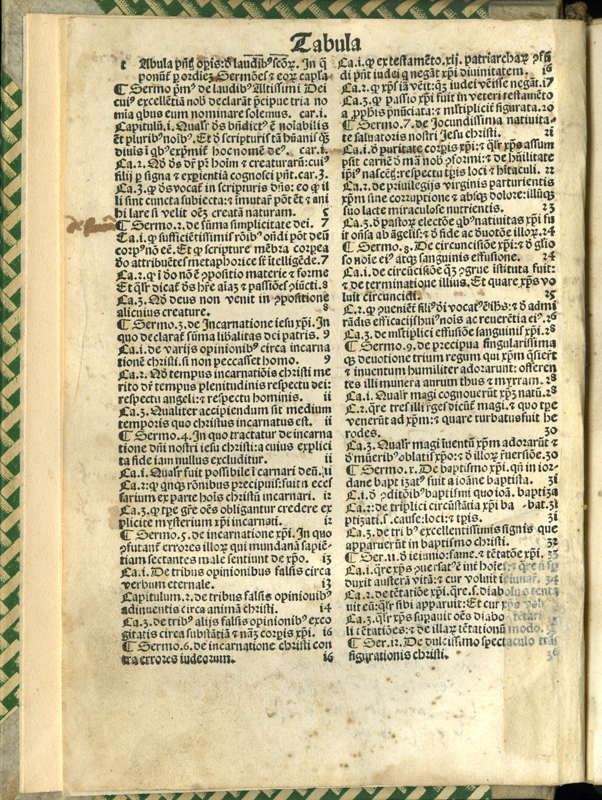 Tabula
t Abula pñtis opis: d̄ laudibꝰ scõꝝ. In q̄
ponūt̃ ꝑ ordiez Sermões ⁊ eoꝝ capła
¶ Sermo pmꝰ de laudibꝰ Altissimi Dei
cuiꝰ excellētiā nob̄ declarāt p̄cipue tria no
mia qbus eum nominare solemus. car. i.
Capitulū. i. Quałr d̄s bn̄dictꝰ ē noiabilis
et pluribꝰ noibꝰ. Et d̄ scripturis tā hūanis q̄
diuis i qbꝰ exp̄mit̃ hoc nomē deꝰ. car. i.
Ca. 2. Nō d̄s d̄r pr̄ hoim ⁊ creaturaꝝ: cuiꝰ
filij ꝑ signa ⁊ expiētia cognosci pn̄t. car. 3.
Ca. 3. ꝙ d̄s vocat̃ in scripturis dn̄s: eo ꝙ il
li sint cuncta subiecta: ⁊ imutar̄ pōt et ⁊ ani
hilare si velit oēz creatā naturam. 5
¶ Sermo. 2. de sūma simplicitate dei. 7
Ca. i. ꝙ sufficiētissimis rōibꝰ oñdi pōt deū
corpꝰ nō eē. Et ꝙ scripture mēbra corpea
do attribuētes metaphorice sr̄ itelligēde. 7
Ca. 2. ꝙ i do nō ē ꝓpositio materie ⁊ forme
Et qłr dicat̃ d̄s hr̄e aiaz ⁊ passiōes ꝓiūcti. 8
Ca. 3. Nō deus non venit in ꝓpositione
alicuius creature. 8
¶ Sermo. 3. de Incarnatione iesu xp̄i. In
quo declarat̃ sūma libalitas dei patris. 9
Ca. i. de varijs opinionibꝰ circa incarna
tionē christi. si non peccasset homo. 9
Ca. 2. Nō tempus incarnatiōis christi me
rito dr̄ tempus plenitudinis respectu dei:
respectu angeli: ⁊ respectu hominis. ii
Ca. 3. Qualiter accipiendum sit medium
temporis quo christus incarnatus est. ii
¶ Sermo. 4. In quo tractatur de incarna
tione dn̄i nostri iesu christi: a cuius explici
ta fide iam nullus excluditur. ii
Ca. i. Quałr fuit possibile icarnari deū. ii
Ca. 2: ꝙ qnqz rōnibus p̄cipuis: fuit n eces
sarium ex parte hoīs christū incarnari. i2
Ca. 3. ꝙ tp̄e gr̄e oēs obligantur credere ex
plicite mysterium xp̄i incarnati. i2
¶ Sermo. 5. de incarnatione xp̄i. In quo
ꝓfutant̃ errores illoꝝ qui mundanā sapiē-
tiam sectantes male sentiunt de xp̄o. i3
Ca. i. De tribus opinionibus falsis circa
verbum eternale. i3
Capitulum. 2. de tribus falsis opinionibꝰ
adinuentis circa animā christi. i4
Ca. 3. de tribꝰ alijs falsis opinionibꝰ exco
gitatis circa substātiā ⁊ nāz corpis xp̄i. i6
¶ Sermo. 6. de incarnatione christi con
tra errores iudeorum. i6
Ca. i. ꝙ ex testamēto. xij. patriarchaꝝ ꝓfu
di pn̄t iudei q negāt xp̄i diuinitatem. i6
Ca. 2. ꝙ xp̄s iā vēit: qz iudei vēisse negāt. i7
Ca. 3. ꝙ passio xp̄i fuit in veteri testamēto
a ꝓphis pn̄uciata: ⁊ mltiplicit̃ figurata. 20
¶ Sermo. 7. de Iocundissima natiuita-
te saluatoris nostri Iesu christi. 2i
Ca. i. d̄ puritate corpis xp̄i: ⁊ qłr xp̄s assum
psit carnē d̄ mā nob̄ ꝓformi: ⁊ de hūilitate
ip̄iꝰ nascēt̃: respectu tp̄is loci ⁊ hitaculi. 22
Ca. 2. de priuilegijs virginis parturientis
xp̄m sine corruptione ⁊ absqz dolore: illūqz
suo lacte miraculose nutrientis. 23
Ca. 3. d̄ pastoꝝ electōe qbꝰ natiuitas xp̄i fu
it oñsa ab āgelis: ⁊ d̄ fide ac d̄uotōe illoꝝ. 24
¶ Sermo. 8. De circuncisiōe xp̄i: ⁊ d̄ glio
so noīe eiꝰ atqz sanguinis effusione. 24
Ca. i. de circūcisiōe qz ꝓgrue istituta fuit:
⁊ de terminatione illius. Et quare xp̄s vo
luit circuncidi. 25
Ca. 3. de mltiplici effusiōe sanguinis xp̄i. 28
¶ Sermo. 9. de precipua singularissima
qz deuotione trium regum qui xp̄m q̄sierūt
⁊ inuentum humiliter adorarunt: offeren
tes illi munera aurum thus ⁊ myrram. 28
Ca. i. Quałr magi cognouerūt xp̄z natū. 28
Ca. 2. qre tres illi reges dicūt̃ magi. ⁊ quo tp̄e
venerūt ad xp̄m: ⁊ quare turbatus fuit he
rodes. 30
Ca. 3. Quałr magi iuentū xp̄m adorarūt ⁊
d̄ mūeribꝰ oblatis xp̄o: ⁊ d̄ illoꝝ ꝓuersiōe. 30
¶ Sermo. x. De baptismo xp̄i. qn̄ in ior-
dane bapt izatꝰ fuit a ioāne baptista. 3i
C. i. d̄ ꝓditōibꝰ baptismi quo ioā. baptiza
Ca. 2: de triplici circūstātia xp̄i ba -bat. 3i
ptizati. s. cause: loci: ⁊ tp̄is. 3i
Ca. 3. de tribꝰ excellentissimis signis que
apparuerūt in baptismo christi. 32
¶ Sermo. ii. d̄ ieiunio: fame. ⁊ tētatōe xp̄i. 33
duxit austerā vitā: ⁊ cur voluit ieiunar̄. 34
Ca. 2. de tētatiōe xp̄i. qre. s. diabolus tenta
uit eū: qłr sibi apparuit: Et cur xp̄s
Ca. 3. qłr xp̄s supauit oēs diabo tētati
li tētatiōes: ⁊ de illaꝝ tētationū modo.
¶ Ser. i2. De dulcissimo spectaculo trās
figurationis christi. 36